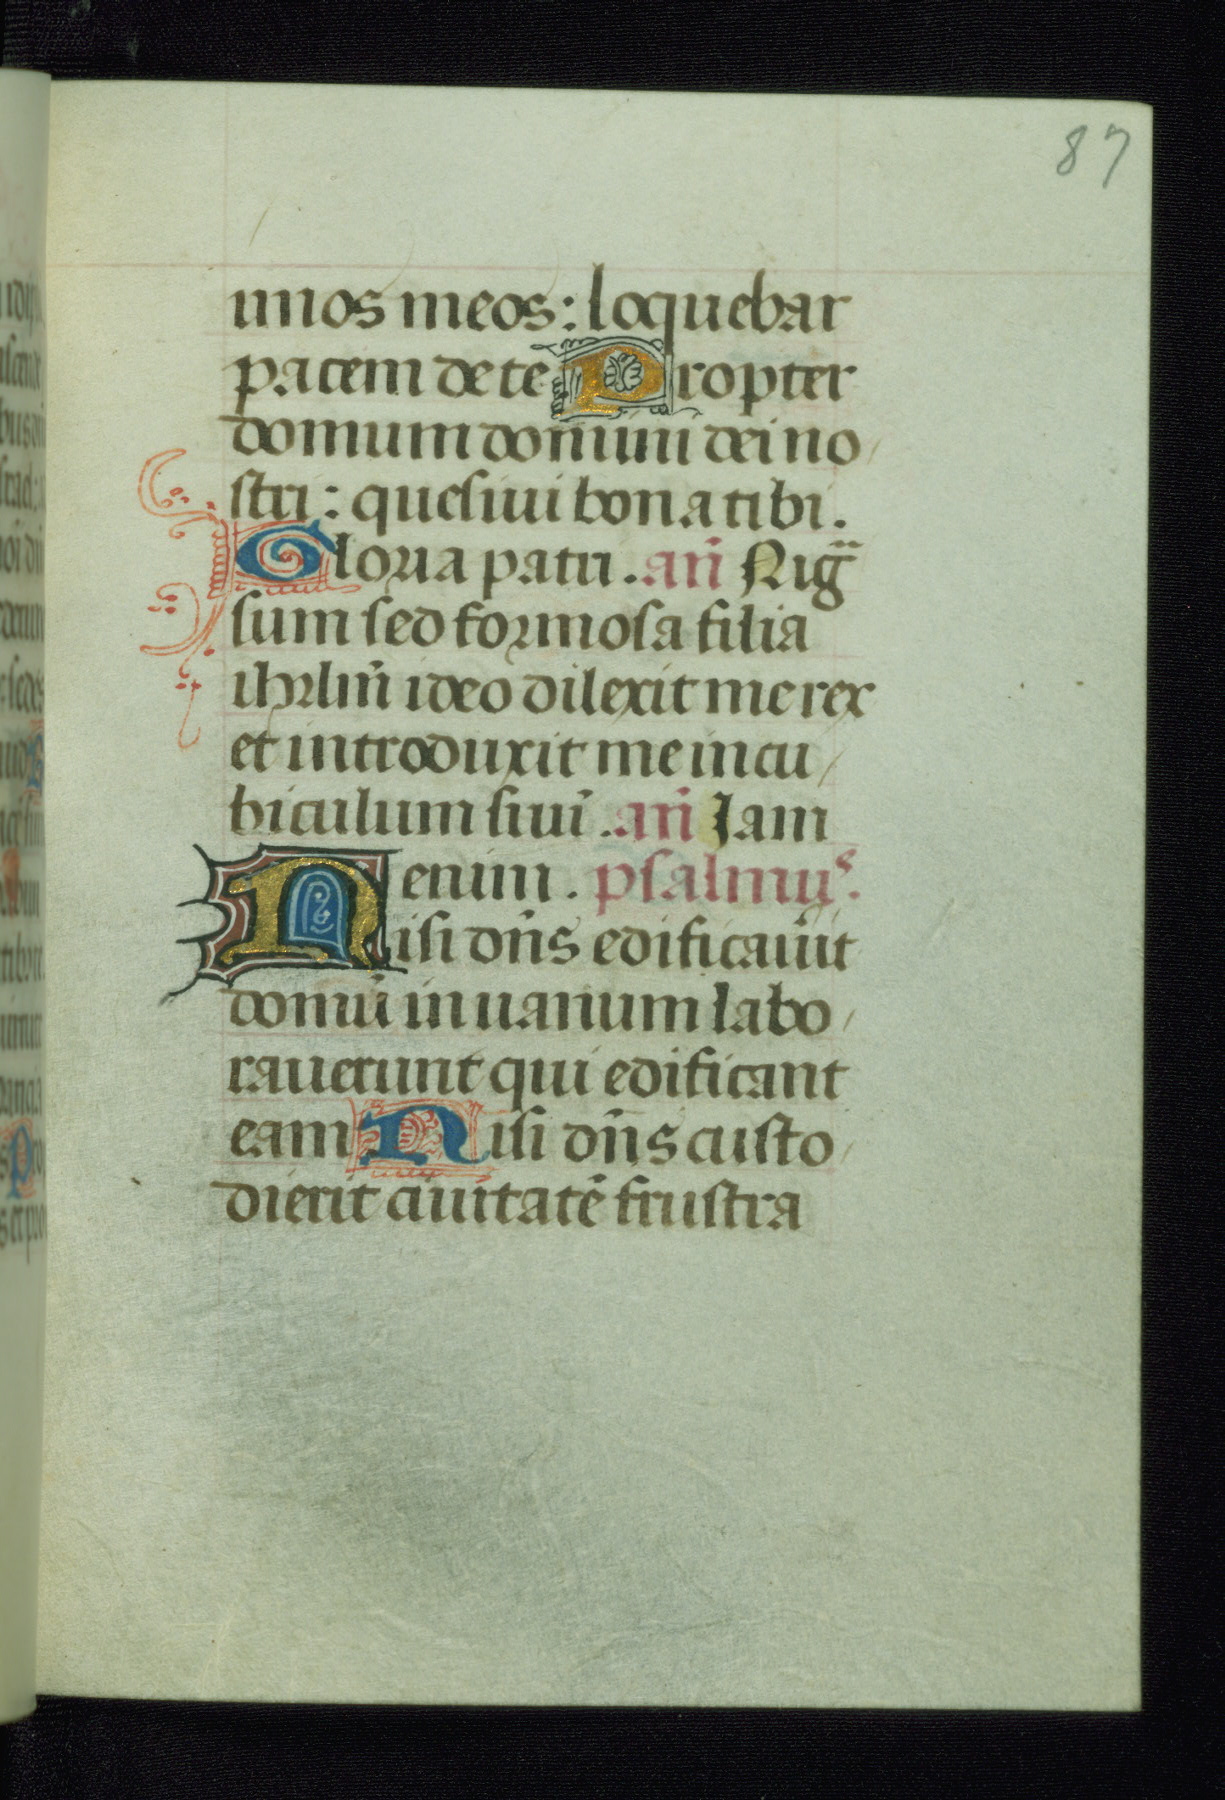 87
imos meos : loquebar
pacem de te Propter
domum domini dei no
stri : quesiui bona tibi .
Gloria patri . añ Nig̈
sum sed formosa filia
ihrlm̄ ideo dilexit me rex
et introduxit me in cu
biculum suū . añ Jam
enim . psalmuˢ .
Nisi dn̄s edificauīt
domū in uanum labo
rauerunt qui edificant
eam Nisi dn̄s custo
dierit ciuitatē frustra